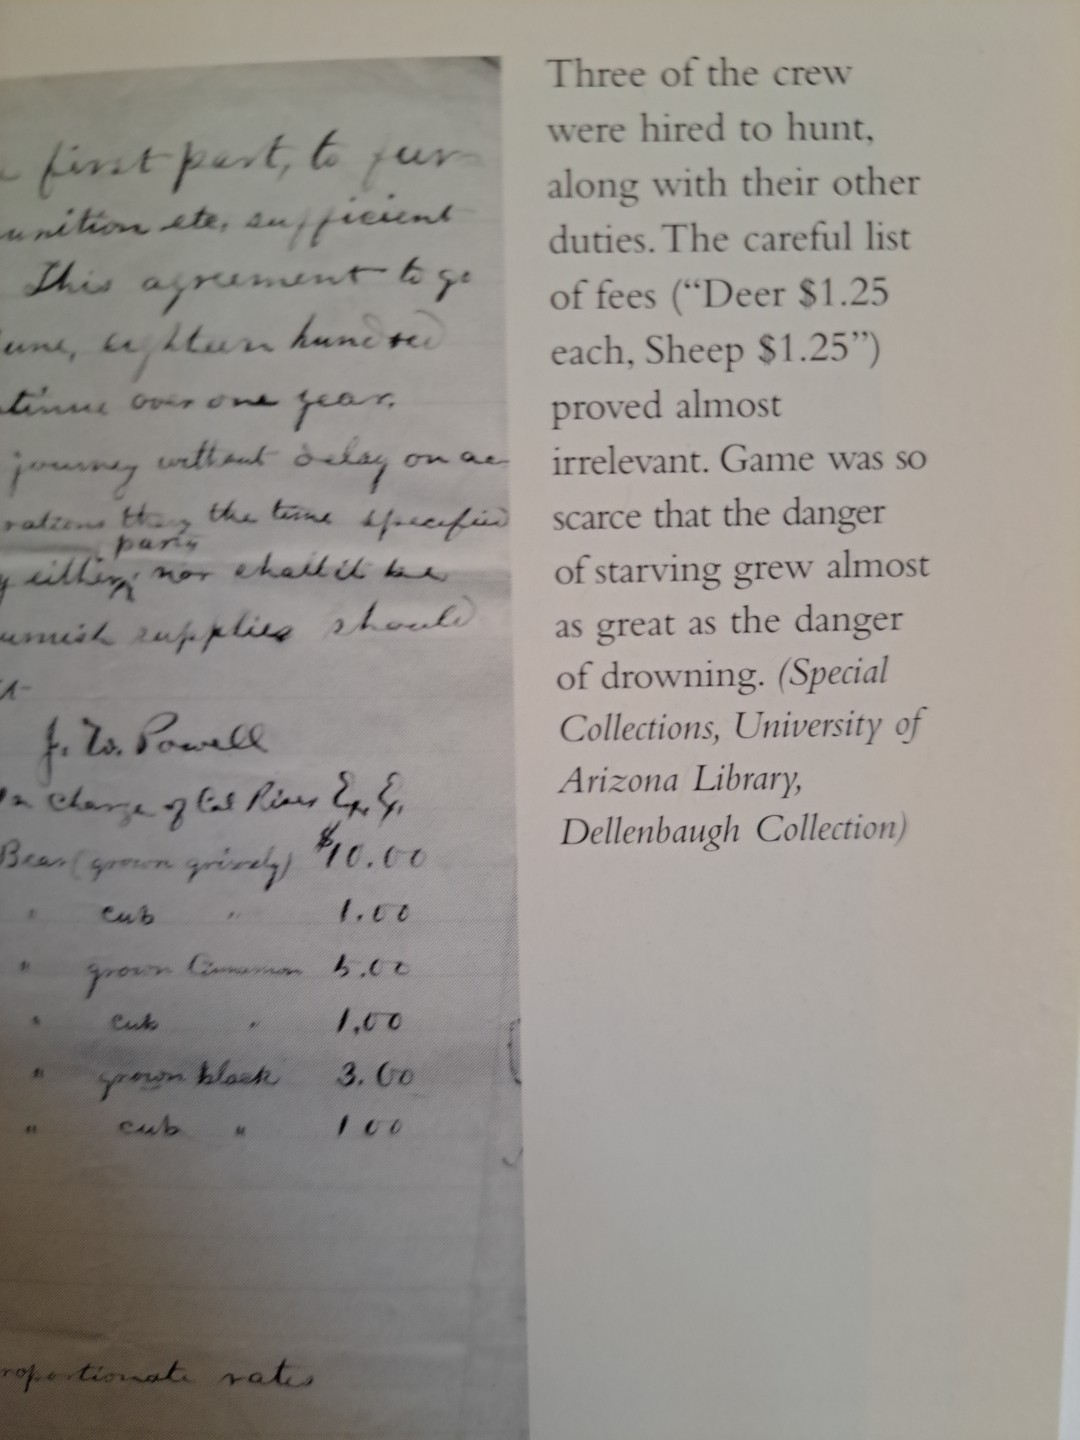 first part, to fur-
unition etc. sufficient
This agreement to go
une, eighteen hundred
tinue over one year.
journey without delay on ac-
rations than the time specified
party
y either; nor shall it be
urnish supplies should
J. W. Powell
In charge of Col River Ex. Ex.
Bear (grown grizzly) $10.00
" cub " 1.00
" grown Cinnamon 5.00
" cub " 1.00
" grown black 3.00
" cub " 1 00
roportionate rates
Three of the crew
were hired to hunt,
along with their other
duties. The careful list
of fees (“Deer $1.25
each, Sheep $1.25”)
proved almost
irrelevant. Game was so
scarce that the danger
of starving grew almost
as great as the danger
of drowning. (Special
Collections, University of
Arizona Library,
Dellenbaugh Collection)